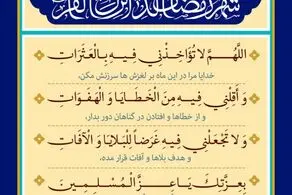 شهر رمضان الذی انزل فیه القرآن
اللَّهُمَّ لَا تُؤَاخِذْنِي فِيهِ بِالْعَثَرَاتِ
خدایا مرا در این ماه بر لغزش ها سرزنش مکن،
وَ أَقِلْنِي فِيهِ مِنَ الْخَطَايَا وَ الْهَفَوَاتِ
و از خطاها و افتادن در گناهان دور بدار،
وَ لَا تَجْعَلْنِي فِيهِ غَرَضاً لِلْبَلَايَا وَ الْآفَاتِ
و هدف بلاها و آفات قرار مده،
بِعِزَّتِكَ يَا عِزَّ الْمُسْلِمِينَ